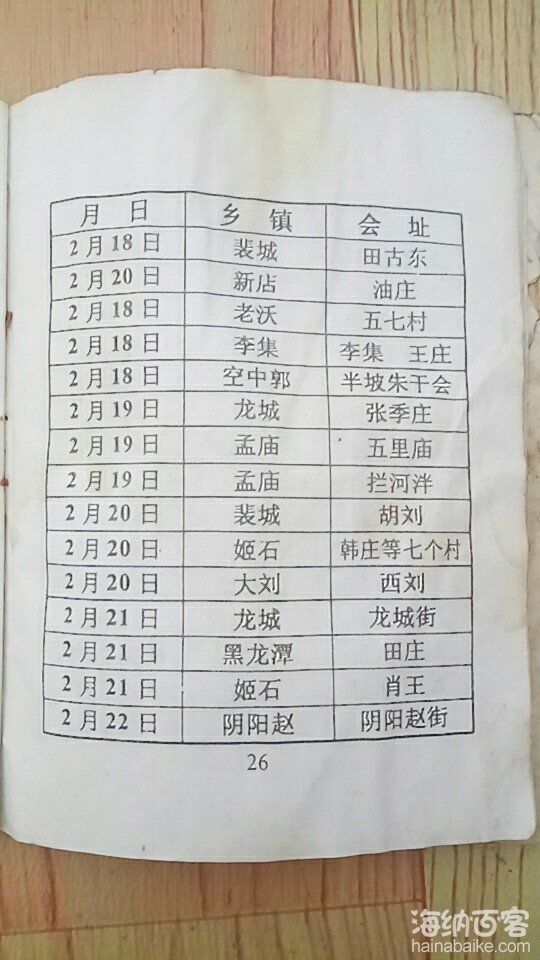 月 日 乡 镇 会 址
2月18日 裴城 田古东
2月20日 新店 油庄
2月18日 老沃 五七村
2月18日 李集 李集 王庄
2月18日 空中郭 半坡朱干会
2月19日 龙城 张季庄
2月19日 孟庙 五里庙
2月19日 孟庙 拦河泮
2月20日 裴城 胡刘
2月20日 姬石 韩庄等七个村
2月20日 大刘 西刘
2月21日 龙城 龙城街
2月21日 黑龙潭 田庄
2月21日 姬石 肖王
2月22日 阴阳赵 阴阳赵街
26
海纳百客
hainabaike.com